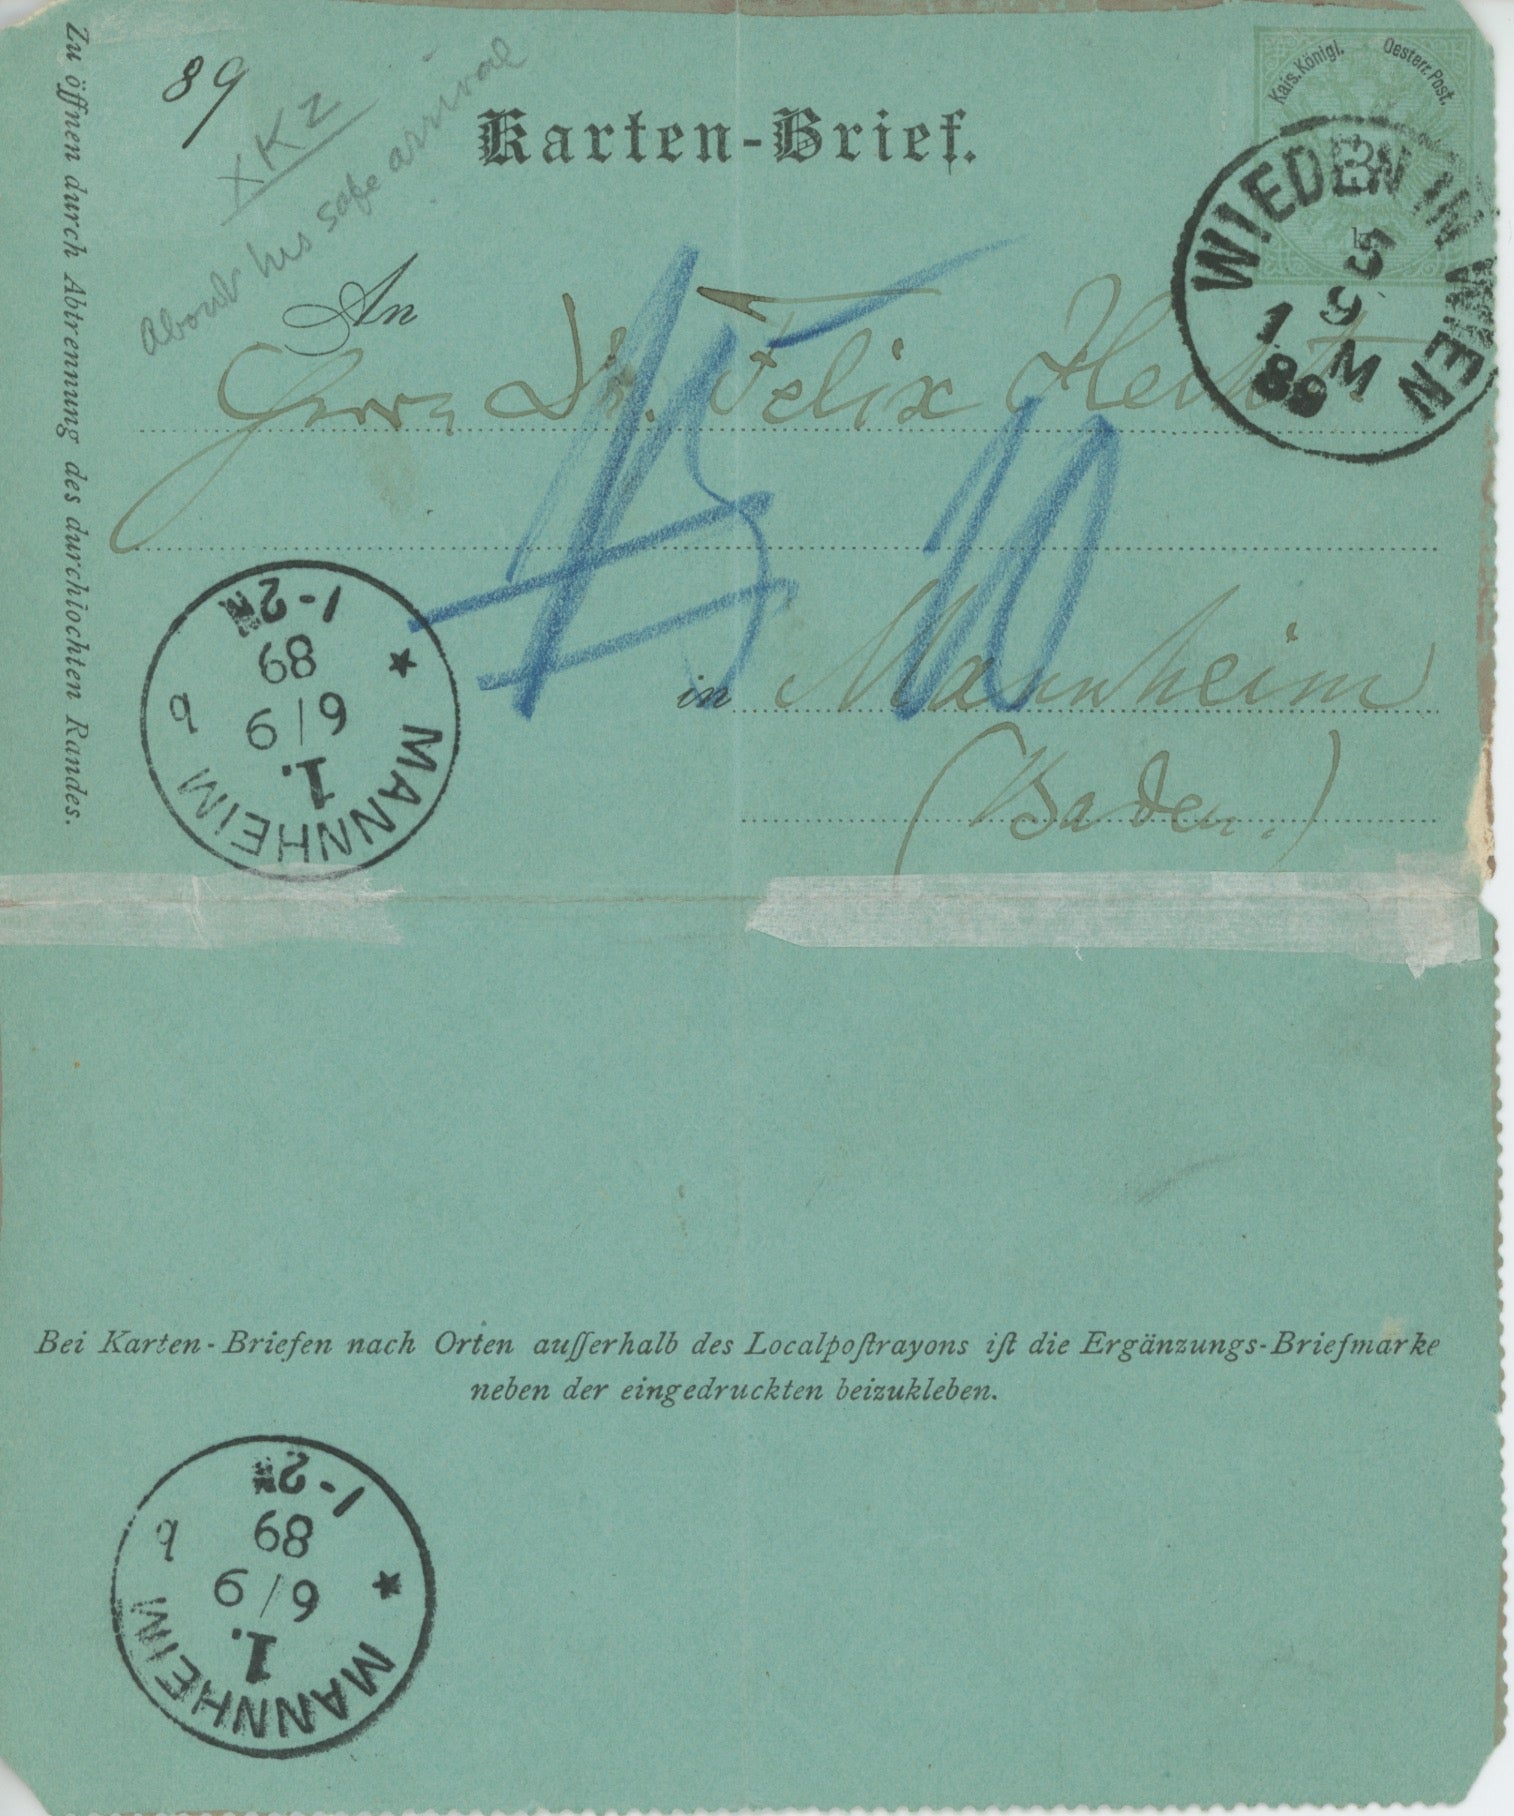 Zu öffnen durch Abtrennung des durchlochten Randes.
89
XKZ
About his safe arrival
Karten-Brief.
Kais. Königl. Oesterr. Post.
3
k
WIEDEN IN WIEN
5
9
1 M
89
An
Herrn Dr. Felix Hecht
15
10
in Mannheim
(Baden.)
MANNHEIM
1.
6/9
89
1-2N
b
Bei Karten-Briefen nach Orten auſſerhalb des Localpoſtrayons iſt die Ergänzungs-Briefmarke
neben der eingedruckten beizukleben.
MANNHEIM
1.
6/9
89
1-2N
b